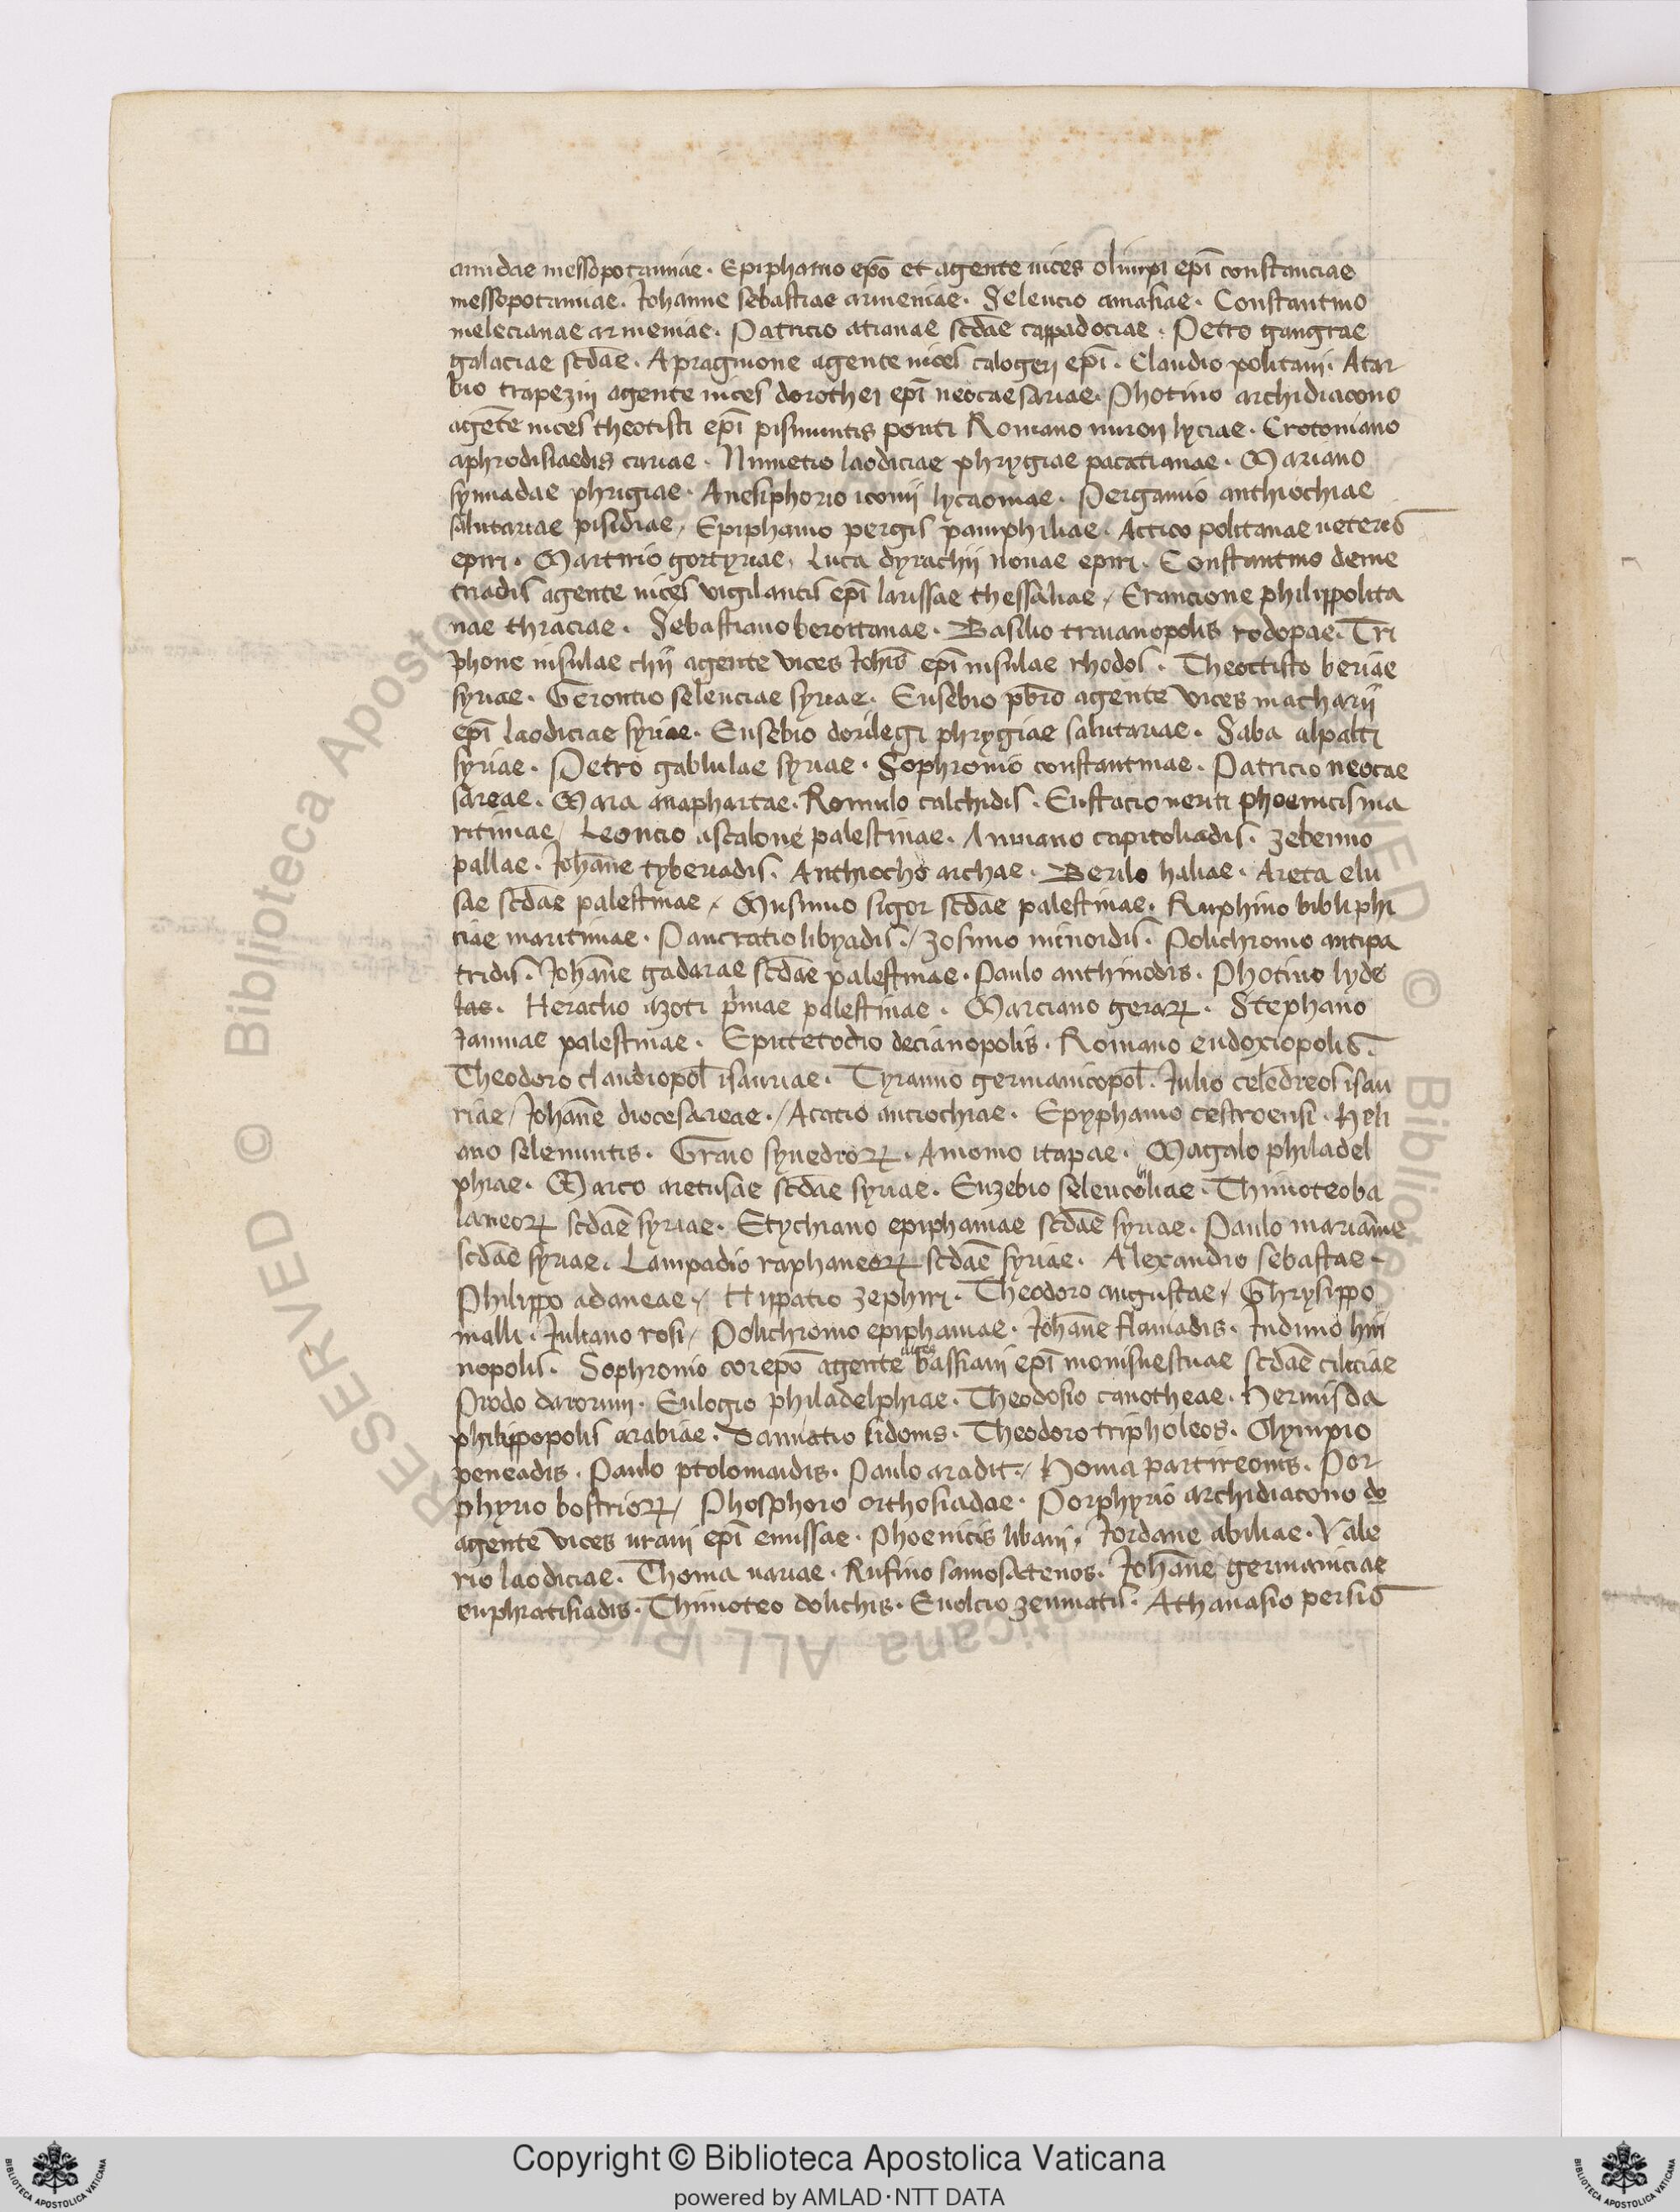 amidae messopotamiae. Epiphanio epō et agente uices olimpi epī constanciae
messopotamiae. Johanne sebastiae armeniae. Seleucio amasiae. Constantino
melecianae armeniae. Patricio atianae scdāe cappadociae. Petro gangrae
galaciae scdāe. Apragmone agente uices calogerj epī. Claudio politani. Atar
bio trapezūi agente uices dorothei epī neocaesariae. Photino archidiacono
agēte uices theotisti epī pismuntis ponti Romano miron lyciae. Crotoniano
aphrodisiaedis cariae. Nunetio laodiciae phrygiae pacatianae. Mariano
synnadae phrigiae. Anesiphorio iconij lycaoniae. Pergamio anthiochiae
salutariae pisidiae, Epiphanio pergis pamphiliae. Attico politanae ueteris
epiri. Martirio gortynae, Luca dyrachij nouae epiri. Constantino deme
triadis agente uices vigilantis epī larissae thessaliae, Erancione philippolita
nae thraciae. Sebastiano berottanae. Basilio traianopolis rodopae. Tri
phone insulae chij agente vices Johīs epī insulae rhodos. Theoctisto beriae
syriae. Gerontio seleuciae syriae. Eusebio pbrō agente vices macharij
epī laodiciae syriae. Eusebio dorilegi phrygiae salutariae. Saba alpalti
syriae. Petro gablulae syriae. Sophronio constantinae. Patricio neocae
sareae. Mara anaphartae. Romulo calchidis. Eustacio neriti phoenicis ma
ritimae, Leoncio ascalone palestinae. Anniano capitoliadis. Zebenno
pallae. Johāne tyberiadis. Anthiocho archae. Berilo haliae. Areta elu
sae scdāe palestinae, Musimio sigor scdāe palestinae. Ruphino bibli phi
ciae maritimae. Pancratio libyadis./ Zosimo minoidis. Polichronio antipa
tridis. Johāne gadarae scdāe palestinae. Paulo anthinodis. Photino lyde
las. Heraclio azoti p̄mae palestinae. Marciano gerarꝝ. Stephano
Jamniae palestinae. Epictetodio decianopolis. Romano eudoxiopolis.
Theodoro claudiopol isauriae. Tyranno germanicopol. Julio celedreos isau
riae, Johāne diocesareae./ Acatio antiochiae. Epyphanio cestroensi. Heli
ano selenuntis. Graio synedrorꝝ. Amonio itapae. Magalo philadel
phiae. Marco aretusae scdāe syriae. Euzebio seleucoliae. Thimoteo ba
laneorꝝ scdāe syriae. Etychiano epiphaniae scdāe syriae. Paulo mariāme
scdāe syriae. Lampadio raphaneorꝝ scdāe syriae. Alexandro sebastae.
Philippo adaneae./ Hypatio zephiri. Theodoro augustae, Chrysippo
malli. Juliano rosi, Polichronio epiphaniae. Johāne flamadis. Indimo hiri
nopolis. Sophronio corepō agente uices bassiani epī monisuestiae scdāe ciliciae
Prodo darorum. Eulogio philadelphiae. Theodosio canotheae. Hermisda
philippopolis arabiae. Damatio sidonis. Theodoro tripholeos. Olympio
peneadis. Paulo ptolomaidis. Paulo aradit./ Homa partireonis. Por
phyrio bostriorꝝ, Phosphoro orthosiadae. Porphyrio archidiacono do
agente vices urani epī emissae. Phoenicis libani, Jordane abiliae. Vale
rio laodiciae. Thoma uariae. Rufino samosatenos. Johāne germaniciae
euphratisiadis. Thimoteo dolichis. Euolcio zeumatis. Athanasio persis
© Biblioteca Apostolica Vaticana ALL RIGHTS RESERVED
Copyright © Biblioteca Apostolica Vaticana
powered by AMLAD·NTT DATA
BIBLIOTECA APOSTOLICA VATICANA
BIBLIOTECA APOSTOLICA VATICANA